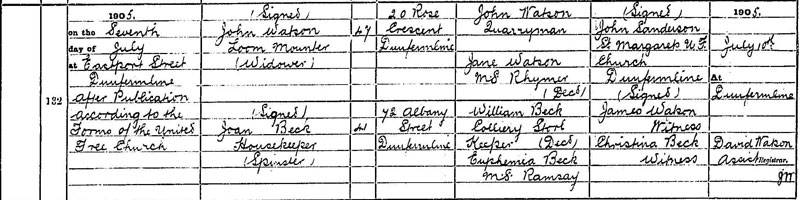 132
1905.
on the Seventh
day of July
at Eastport Street
Dunfermline
After Publication
according to the
Forms of the United
Free Church
(Signed)
John Watson
Loom Mounter
(Widower)
(Signed)
Joan Beck
Housekeeper
(Spinster)
47
41
20 Rose
Crescent
Dunfermline
72 Albany
Street
Dunfermline
John Watson
Quarryman
Jane Watson
M.S. Rhymer
(Decd)
William Beck
Colliery Store
Keeper (Decd)
Euphemia Beck
M.S. Ramsay
(Signed)
John Sanderson
St. Margarets U.F.
Church
Dunfermline
(Signed)
James Watson
Witness
Christina Beck
Witness
1905.
July 10th
At
Dunfermline
David Watson
Assist Registrar.